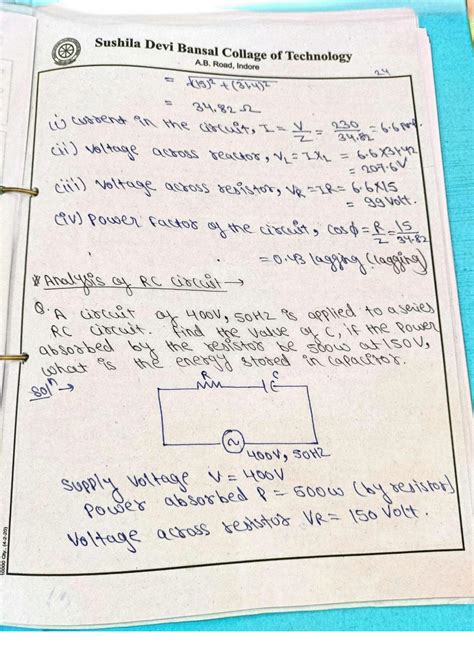 Sushila Devi Bansal Collage of Technology
A.B. Road, Indore
24
= √(15)² + (31.4)²
= 34.82 Ω
(i) current in the circuit, I = V/Z = 230/34.82 = 6.6
(ii) Voltage across reactor, VL = IXL = 6.6 X 31.42
= 207.6 V
(iii) Voltage across resistor, VR = IR = 6.6 X 15
= 99 Volt.
(iv) Power Factor of the circuit, cosϕ = R/Z = 15/34.82
= 0.43 lagging (lagging)
* Analysis of RC circuit →
Q. A circuit of 400V, 50HZ is applied to a series
RC circuit. Find the value of C, if the Power
absorbed by the resistor be 500W at 150V,
what is the energy stored in capacitor.
Solⁿ →
R C
400V, 50HZ
Supply Voltage V = 400V
Power absorbed P = 500W (by resistor)
Voltage across resistor VR = 150 Volt.